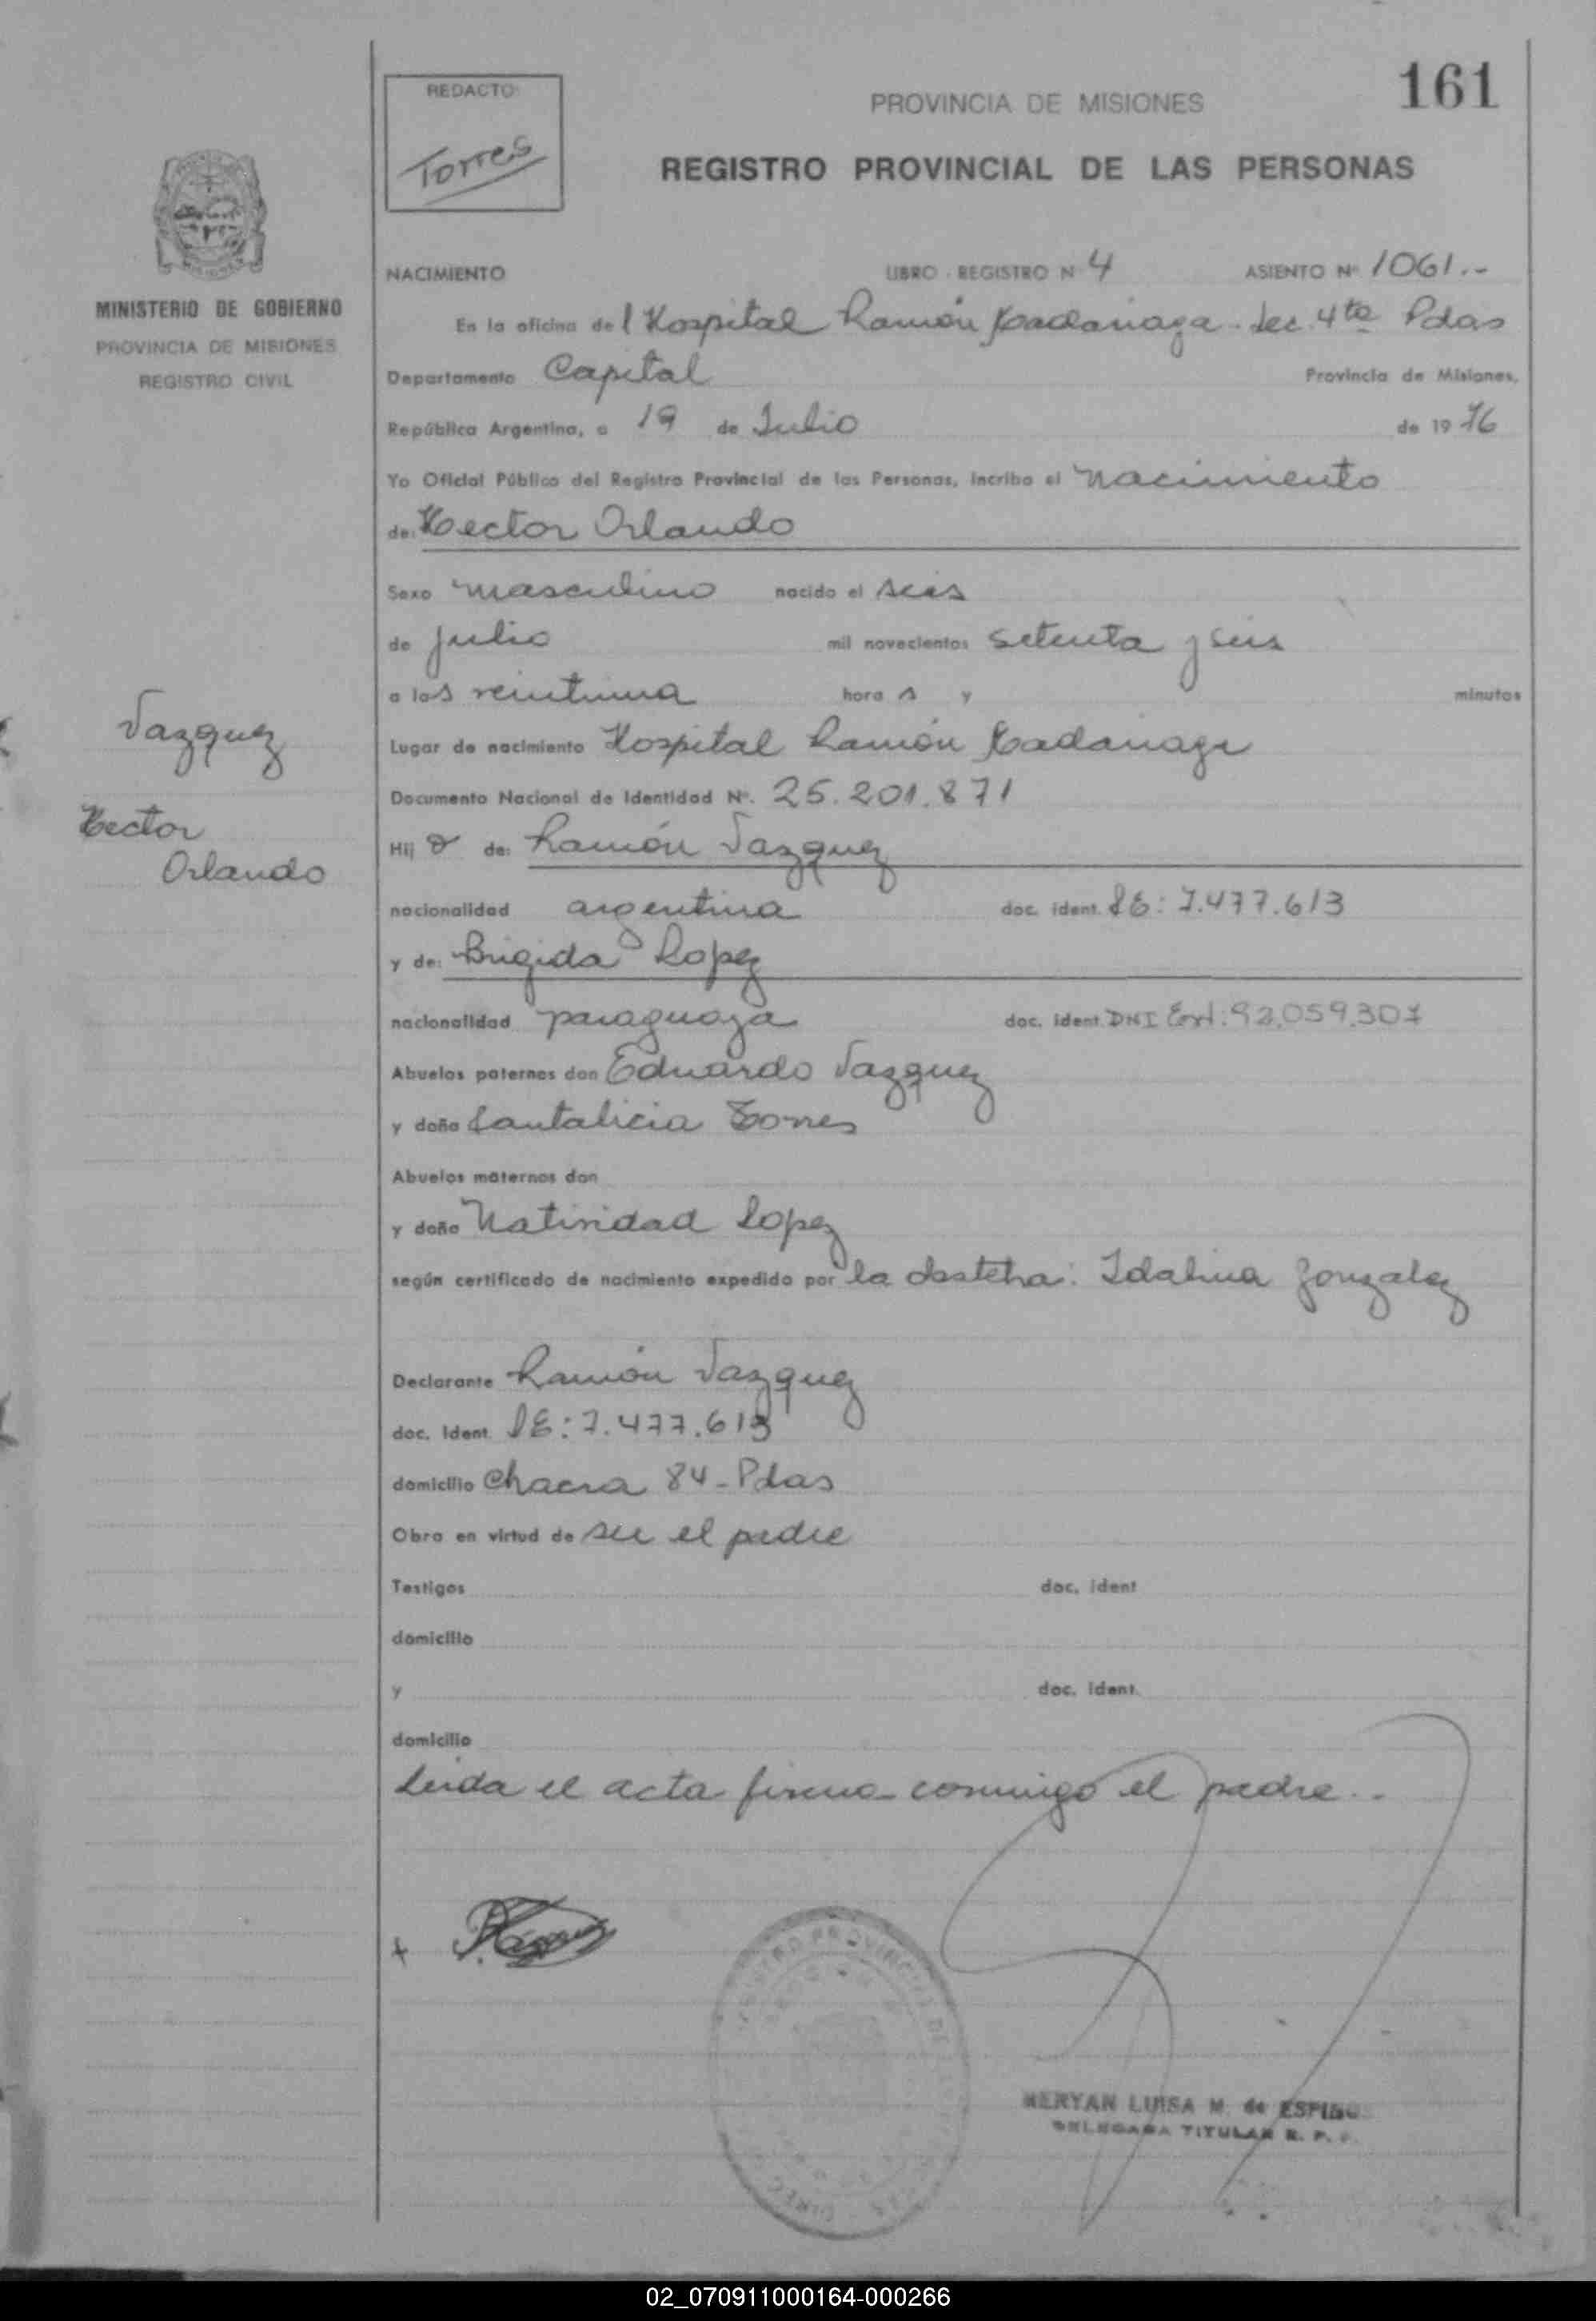 161
REDACTO:
Torres
PROVINCIA DE MISIONES
REGISTRO PROVINCIAL DE LAS PERSONAS
MINISTERIO DE GOBIERNO
PROVINCIA DE MISIONES
REGISTRO CIVIL
NACIMIENTO LIBRO REGISTRO Nº 4 ASIENTO Nº 1061.-
En la oficina del Hospital Ramón Madariaga - Sec. 4ta Pdas
Departamento Capital Provincia de Misiones,
República Argentina, a 19 de Julio de 1976
Yo Oficial Público del Registro Provincial de las Personas, incribo el nacimiento
de: Hector Orlando
Sexo masculino nacido el seis
de julio mil novecientos setenta y seis
a las veintiuna horas y minutos
Vazquez
Hector
Orlando
Lugar de nacimiento Hospital Ramón Madariaga
Documento Nacional de Identidad Nº. 25.201.871
Hijo de: Ramón Vazquez
nacionalidad argentina doc. ident. LE: 7.477.613
y de: Brigida Lopez
nacionalidad paraguaya doc. ident. DNI Ext: 92.059.307
Abuelos paternos don Eduardo Vazquez
y doña Santalicia Torres
Abuelos maternos don
y doña Natividad Lopez
según certificado de nacimiento expedido por la obstetra: Idalina Gonzalez
Declarante Ramón Vazquez
doc. ident. LE: 7.477.613
domicilio Chacra 84 - Pdas
Obra en virtud de ser el padre
Testigos doc. ident
domicilio
y doc. ident.
domicilio
Leida el acta firma conmigo el padre.-
NERYAN LUISA M. de ESPIN
DELEGADA TITULAR R. P. P.
02_070911000164-000266